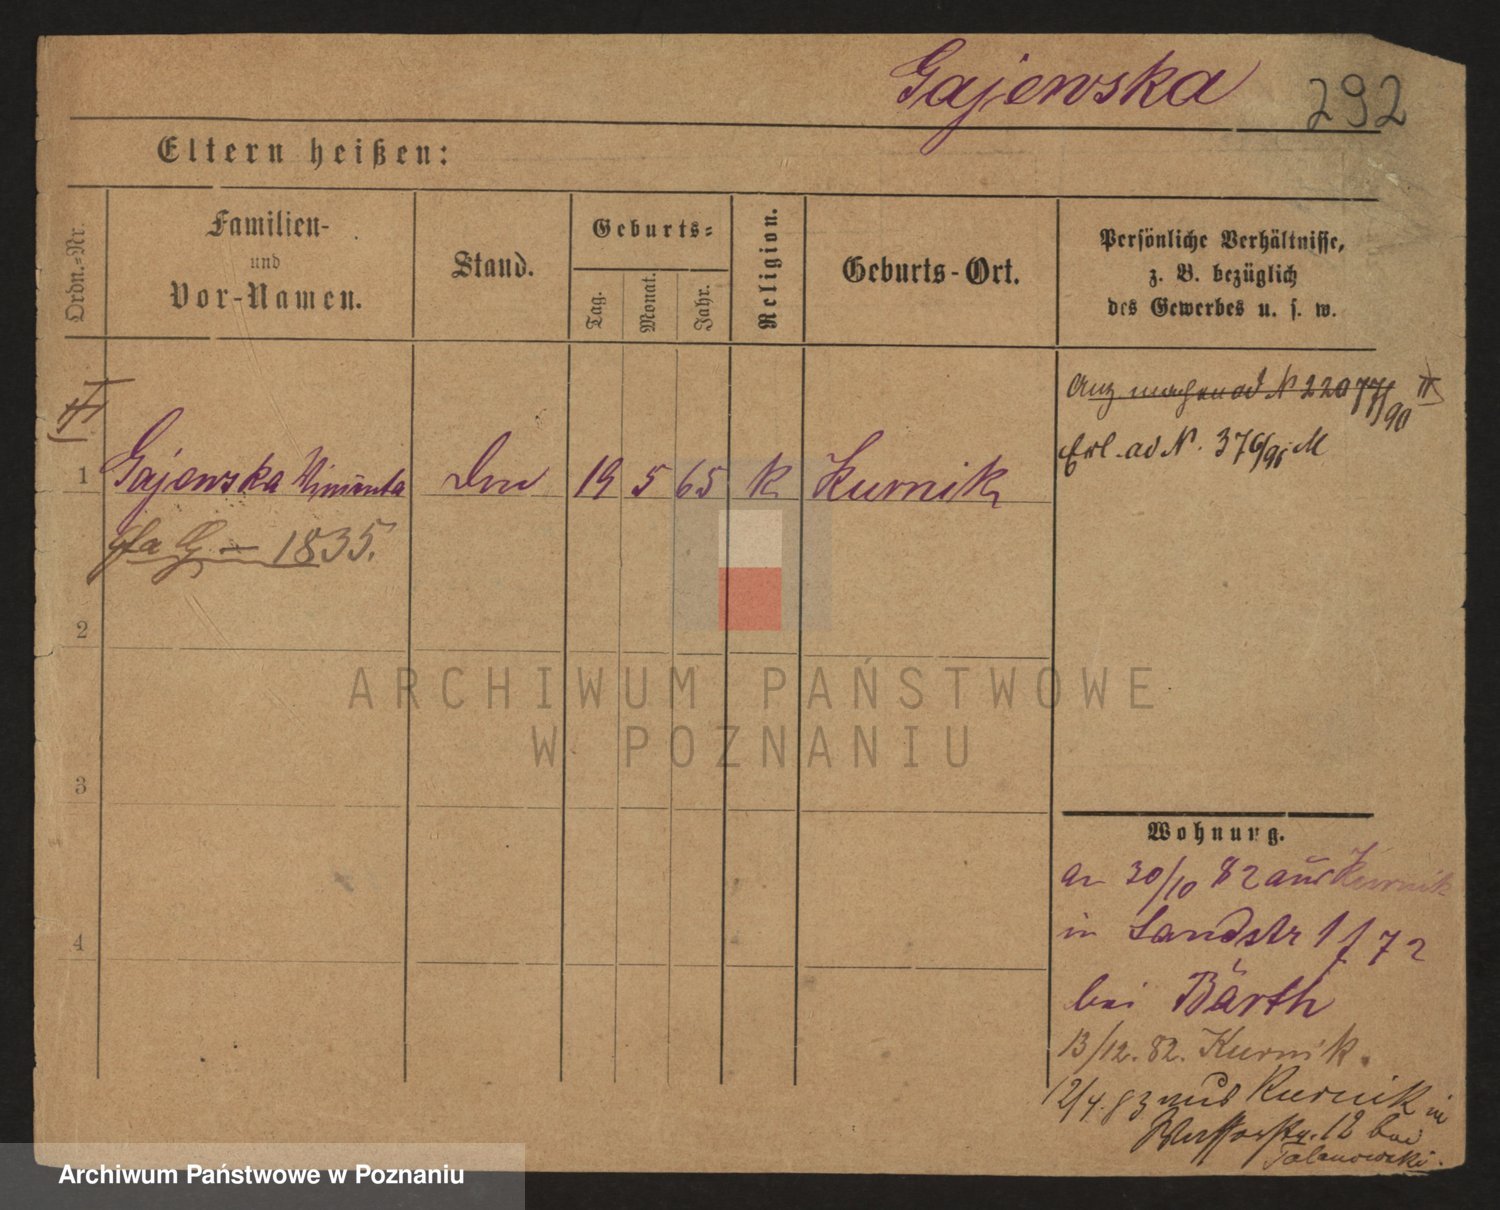 Gajewska 292
Eltern heißen:
Ordn.-Nr.
Familien-
und
Vor-Namen.
Stand.
Geburts-
Tag.
Monat.
Jahr.
Religion.
Geburts-Ort.
Persönliche Verhältnisse,
z. B. bezüglich
des Gewerbes u. s. w.
ad N 22077/90
Erl. ad N. 376/96 M
1 Gajewska 19 5 65 k Kurnik
G – 1835.
2
3
4
ARCHIWUM PAŃSTWOWE
W POZNANIU
Wohnung.
an 30/10 82 aus Kurnik
in Landstr 1 f 72
bei Bärth
13/12. 82. Kurnik.
12/4. 83 aus Kurnik in
Wasserstr. 18 bei
Talanowski.
Archiwum Państwowe w Poznaniu